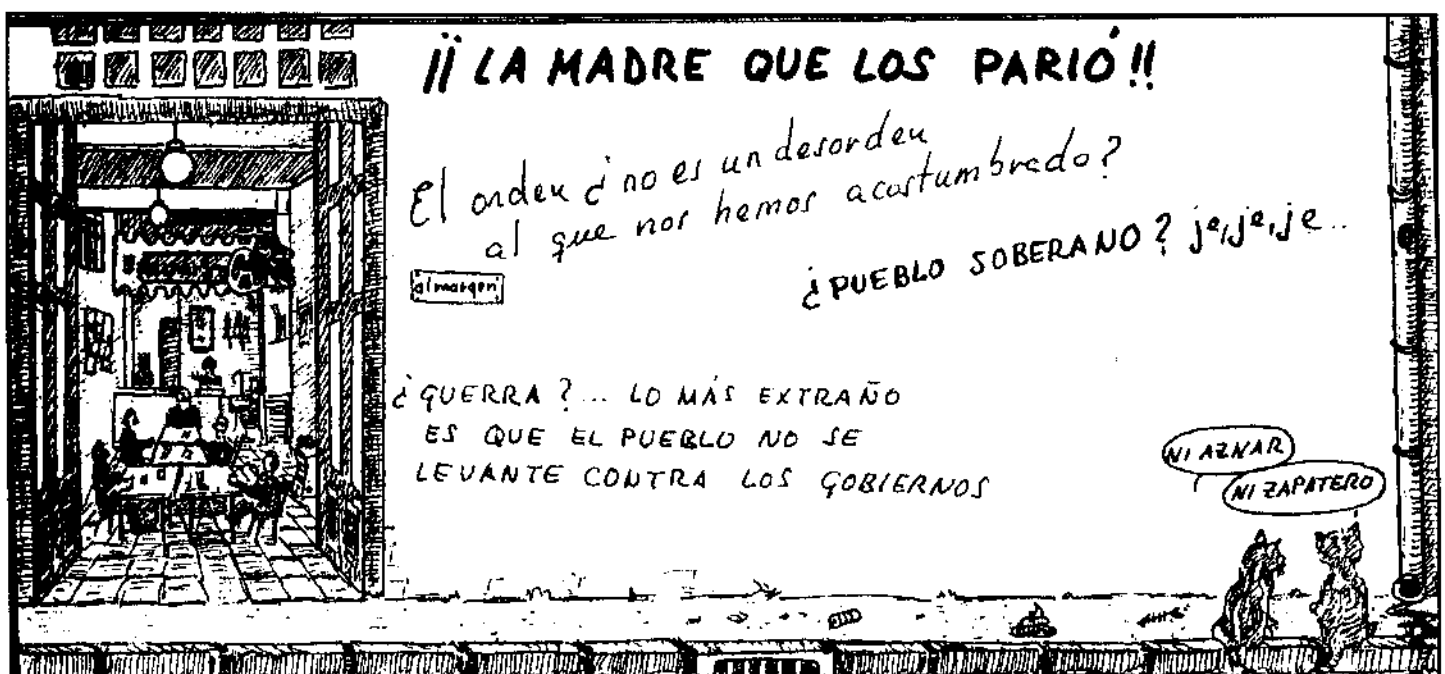 ¡¡LA MADRE QUE LOS PARIÓ!!
El orden ¿no es un desorden
al que nos hemos acostumbrado?
almargen
¿PUEBLO SOBERANO? je, je, je..
¿GUERRA?... LO MÁS EXTRAÑO
ES QUE EL PUEBLO NO SE
LEVANTE CONTRA LOS GOBIERNOS
NI AZNAR
NI ZAPATERO